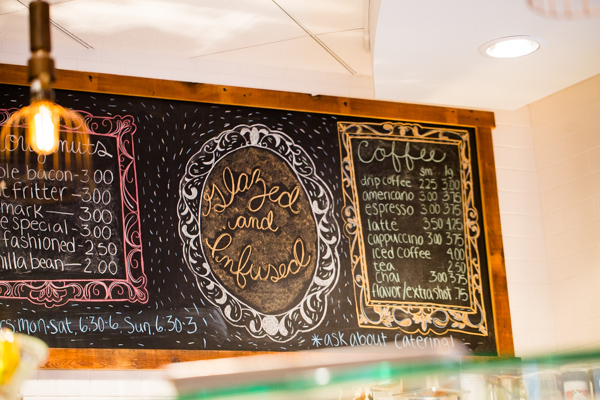 nuts
bacon-3.00
fritter- 3.00
mark— 3.00
special- 3.00
fashioned- 2.50
bean— 2.00
mon-sat 6:30-6 Sun. 6:30-3
glazed
and
Infused
Coffee
sm lg
drip coffee 2.25 3.00
americano 3.00 3.75
espresso 3.00 3.75
latte 3.50 4.25
cappuccino 3.00 3.75
iced coffee 4.00
tea 2.50
Chai 3.00 3.75
flavor/extra shot .75
*ask about catering!